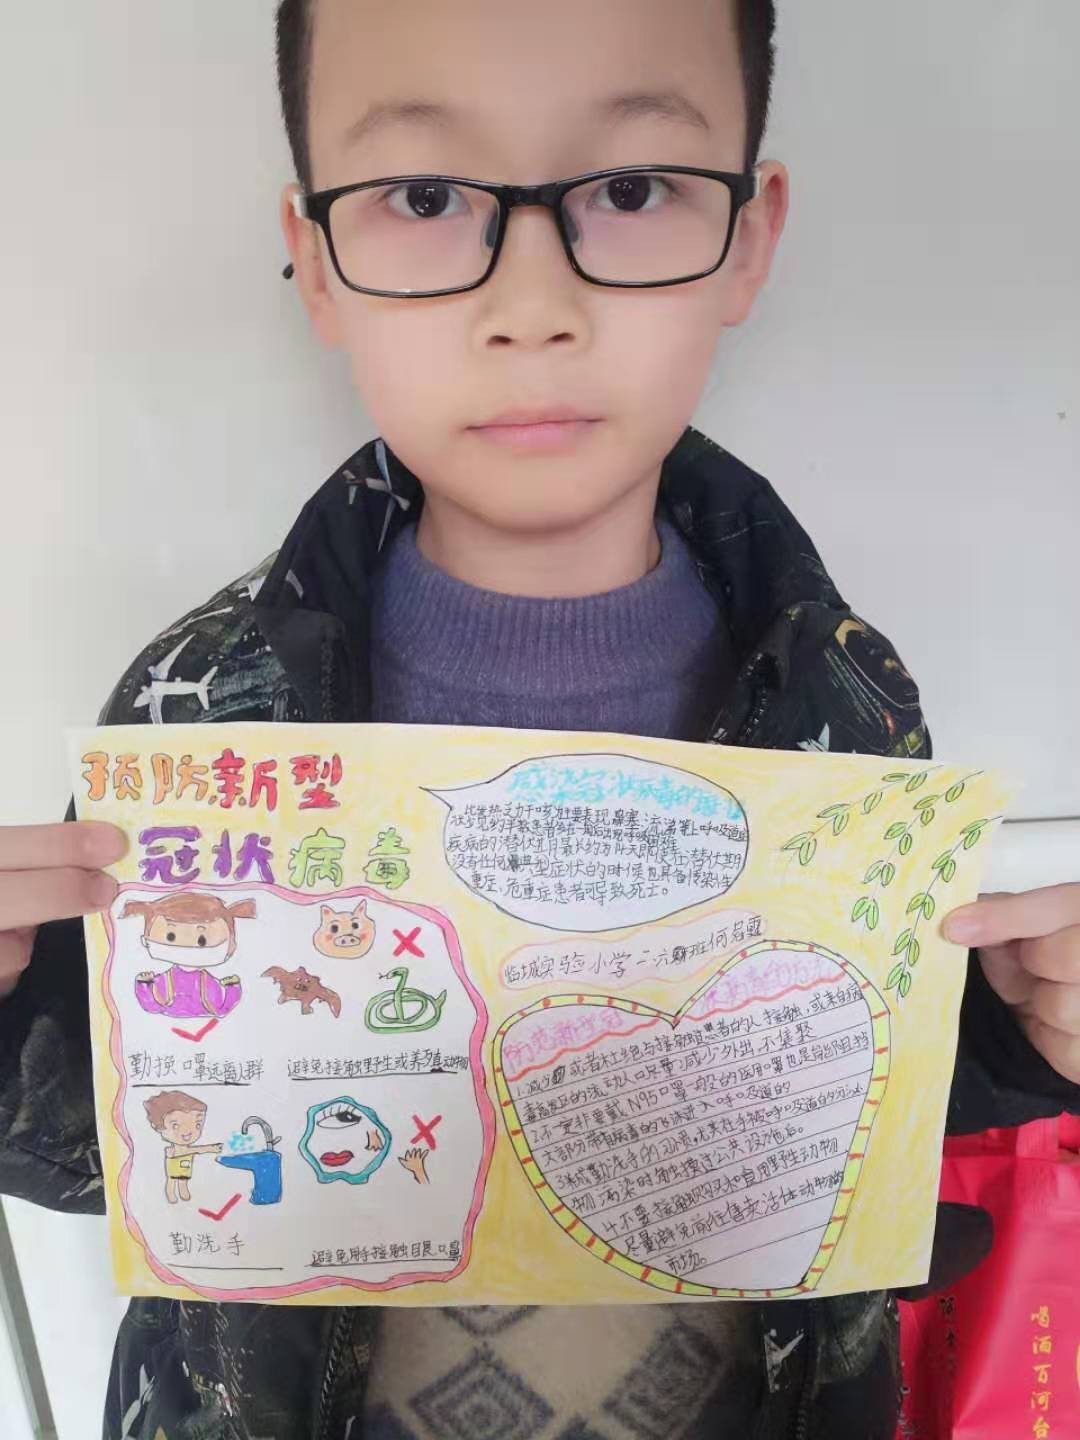 预防新型
冠状病毒
勤换口罩远离人群
避免接触野生或养殖动物
勤洗手
避免用手接触目艮口鼻
感染冠状病毒的
疾病的潜伏期最长约为14天即使在潜伏期
没有任何典型症状的时候也具备传染性
重症,危重症患者可导致死亡。
临城实验小学二六班何名
防范新型冠
1.减少或者杜绝与接触过患者的人接触,或来自病
的流动人口尽量减少外出,不集聚
2.不一定非要戴N95口罩一般的医用口罩也是能阻挡
大部分带有病毒的飞沫进入呼吸道的
3.养成勤洗手的习惯,尤其在手被呼吸道的分泌
物污染时触摸过公共设施后。
4.不要接触和食用野生动物
尽量避免前往售卖活体动物
市场。
喝酒百河台